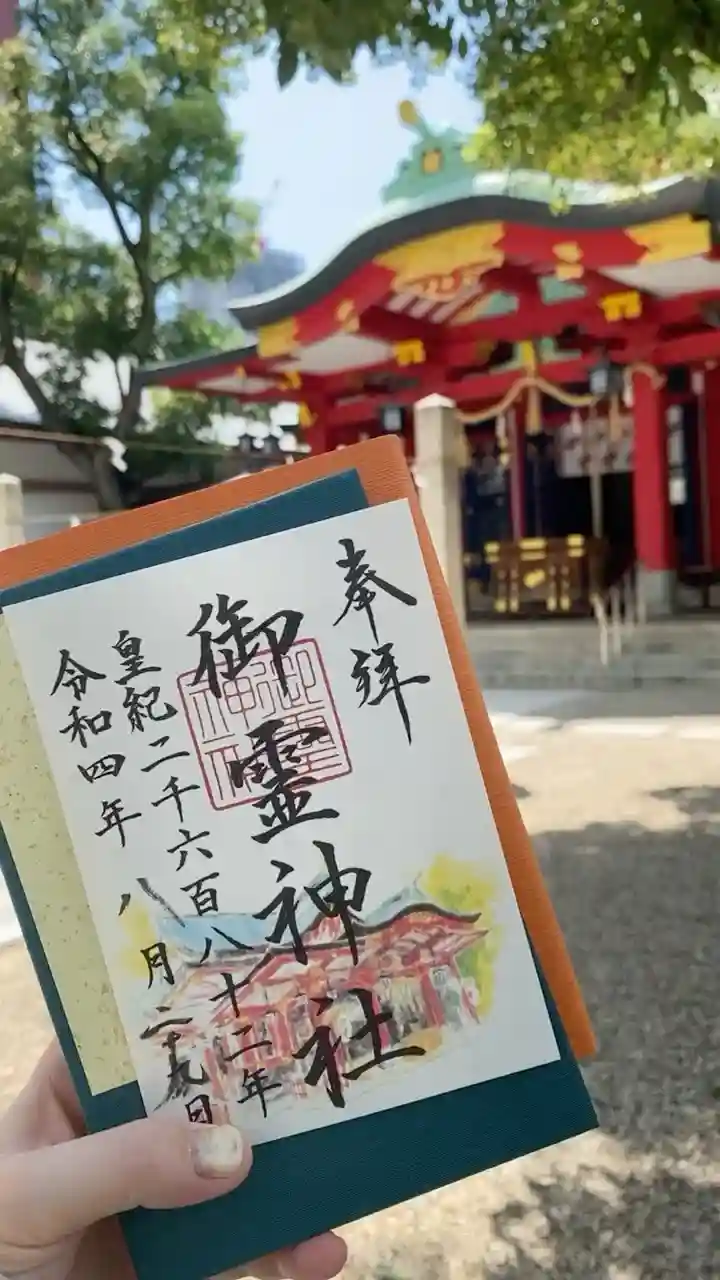 奉拝
御靈神社
皇紀二千六百八十二年
令和四年八月二十九日